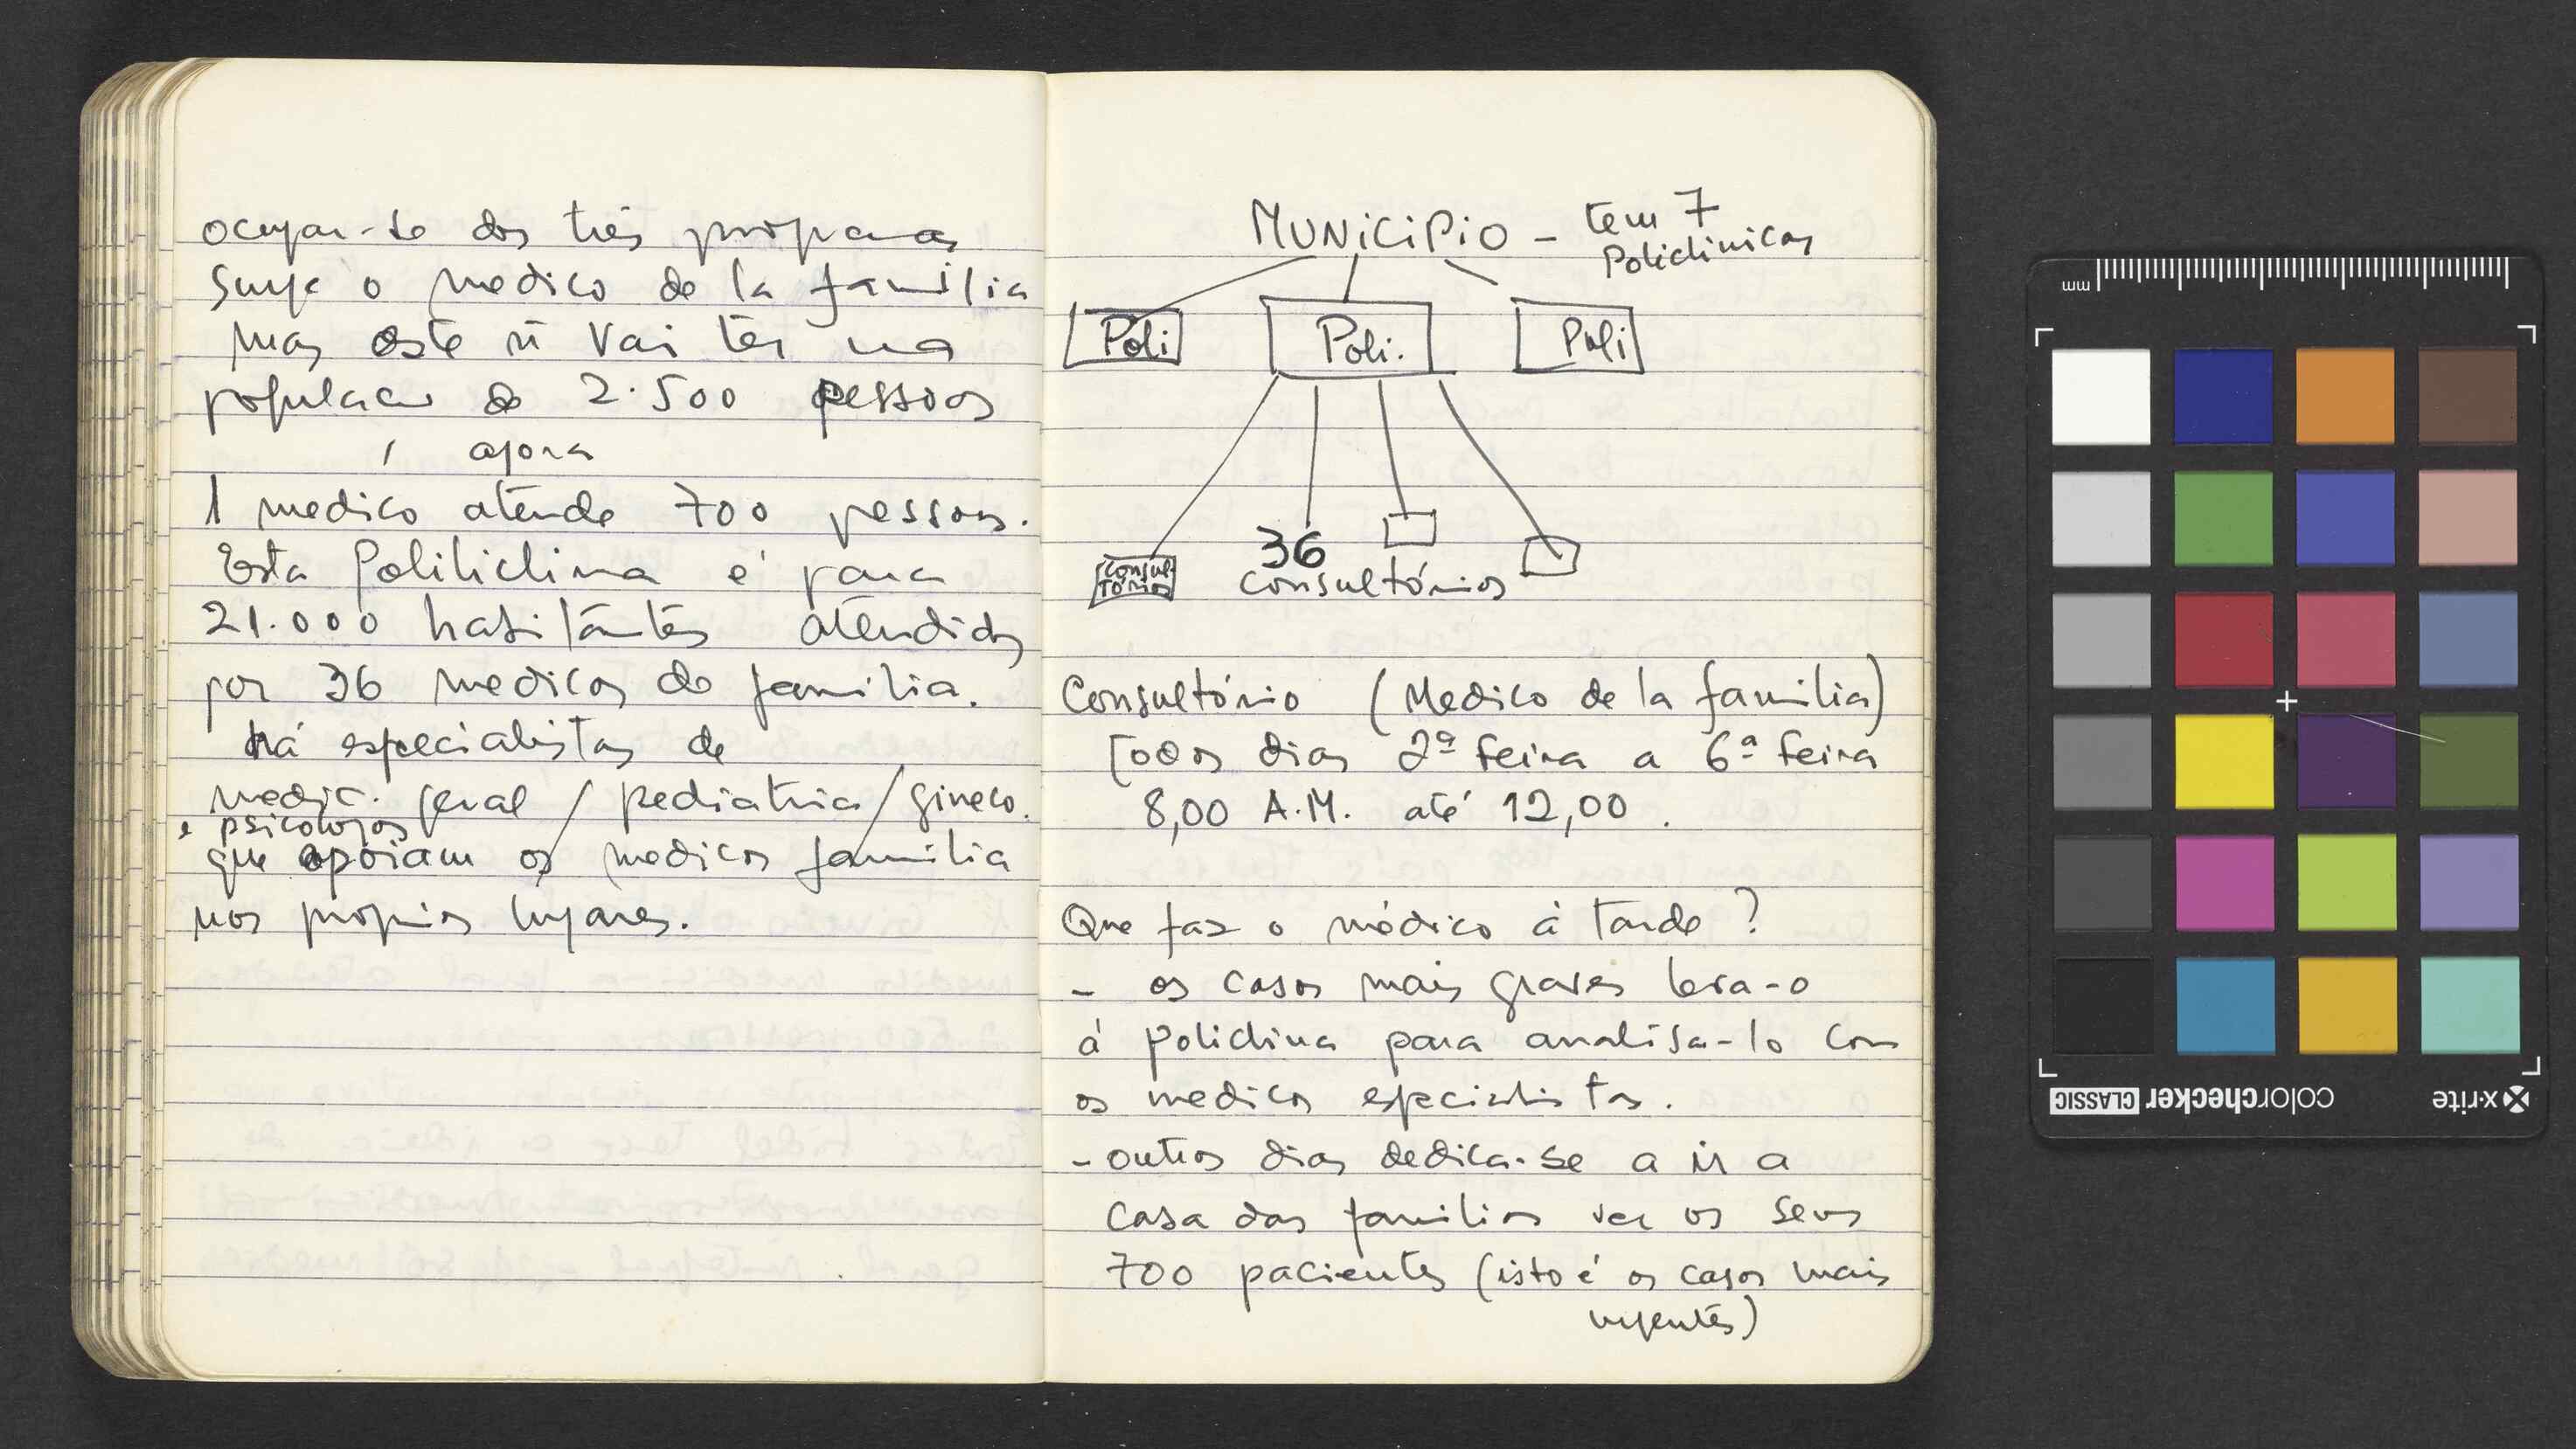 ocupar-se dos três programas
Surge o medico de la familia
mas este ñ vai ter uma
populacão de 2.500 pessoas
agora
1 medico atende 700 pessoas.
Esta Policliclina é para
21.000 habitantes atendidos
por 36 medicos de familia.
há especialistas de
medic. geral / pediatria / gineco.
e psicologos
que apoiam os medicos familia
nos proprios lugares.
MUNiCiPiO - tem 7
Policlinicas
Poli Poli. Poli
Consul-
tórios
36
Consultórios
Consultório (Medico de la familia)
Todos dias 2ª feira a 6ª feira
8,00 A.M. até 12,00.
Que faz o médico á tarde?
- os casos mais graves leva-o
á policlina para analisa-lo com
os medicos especialistas.
- outros dias dedica-se a ir a
casa das familias ver os seus
700 pacientes (isto é os casos mais
urgentes)
mm
x-rite
colorchecker CLASSIC